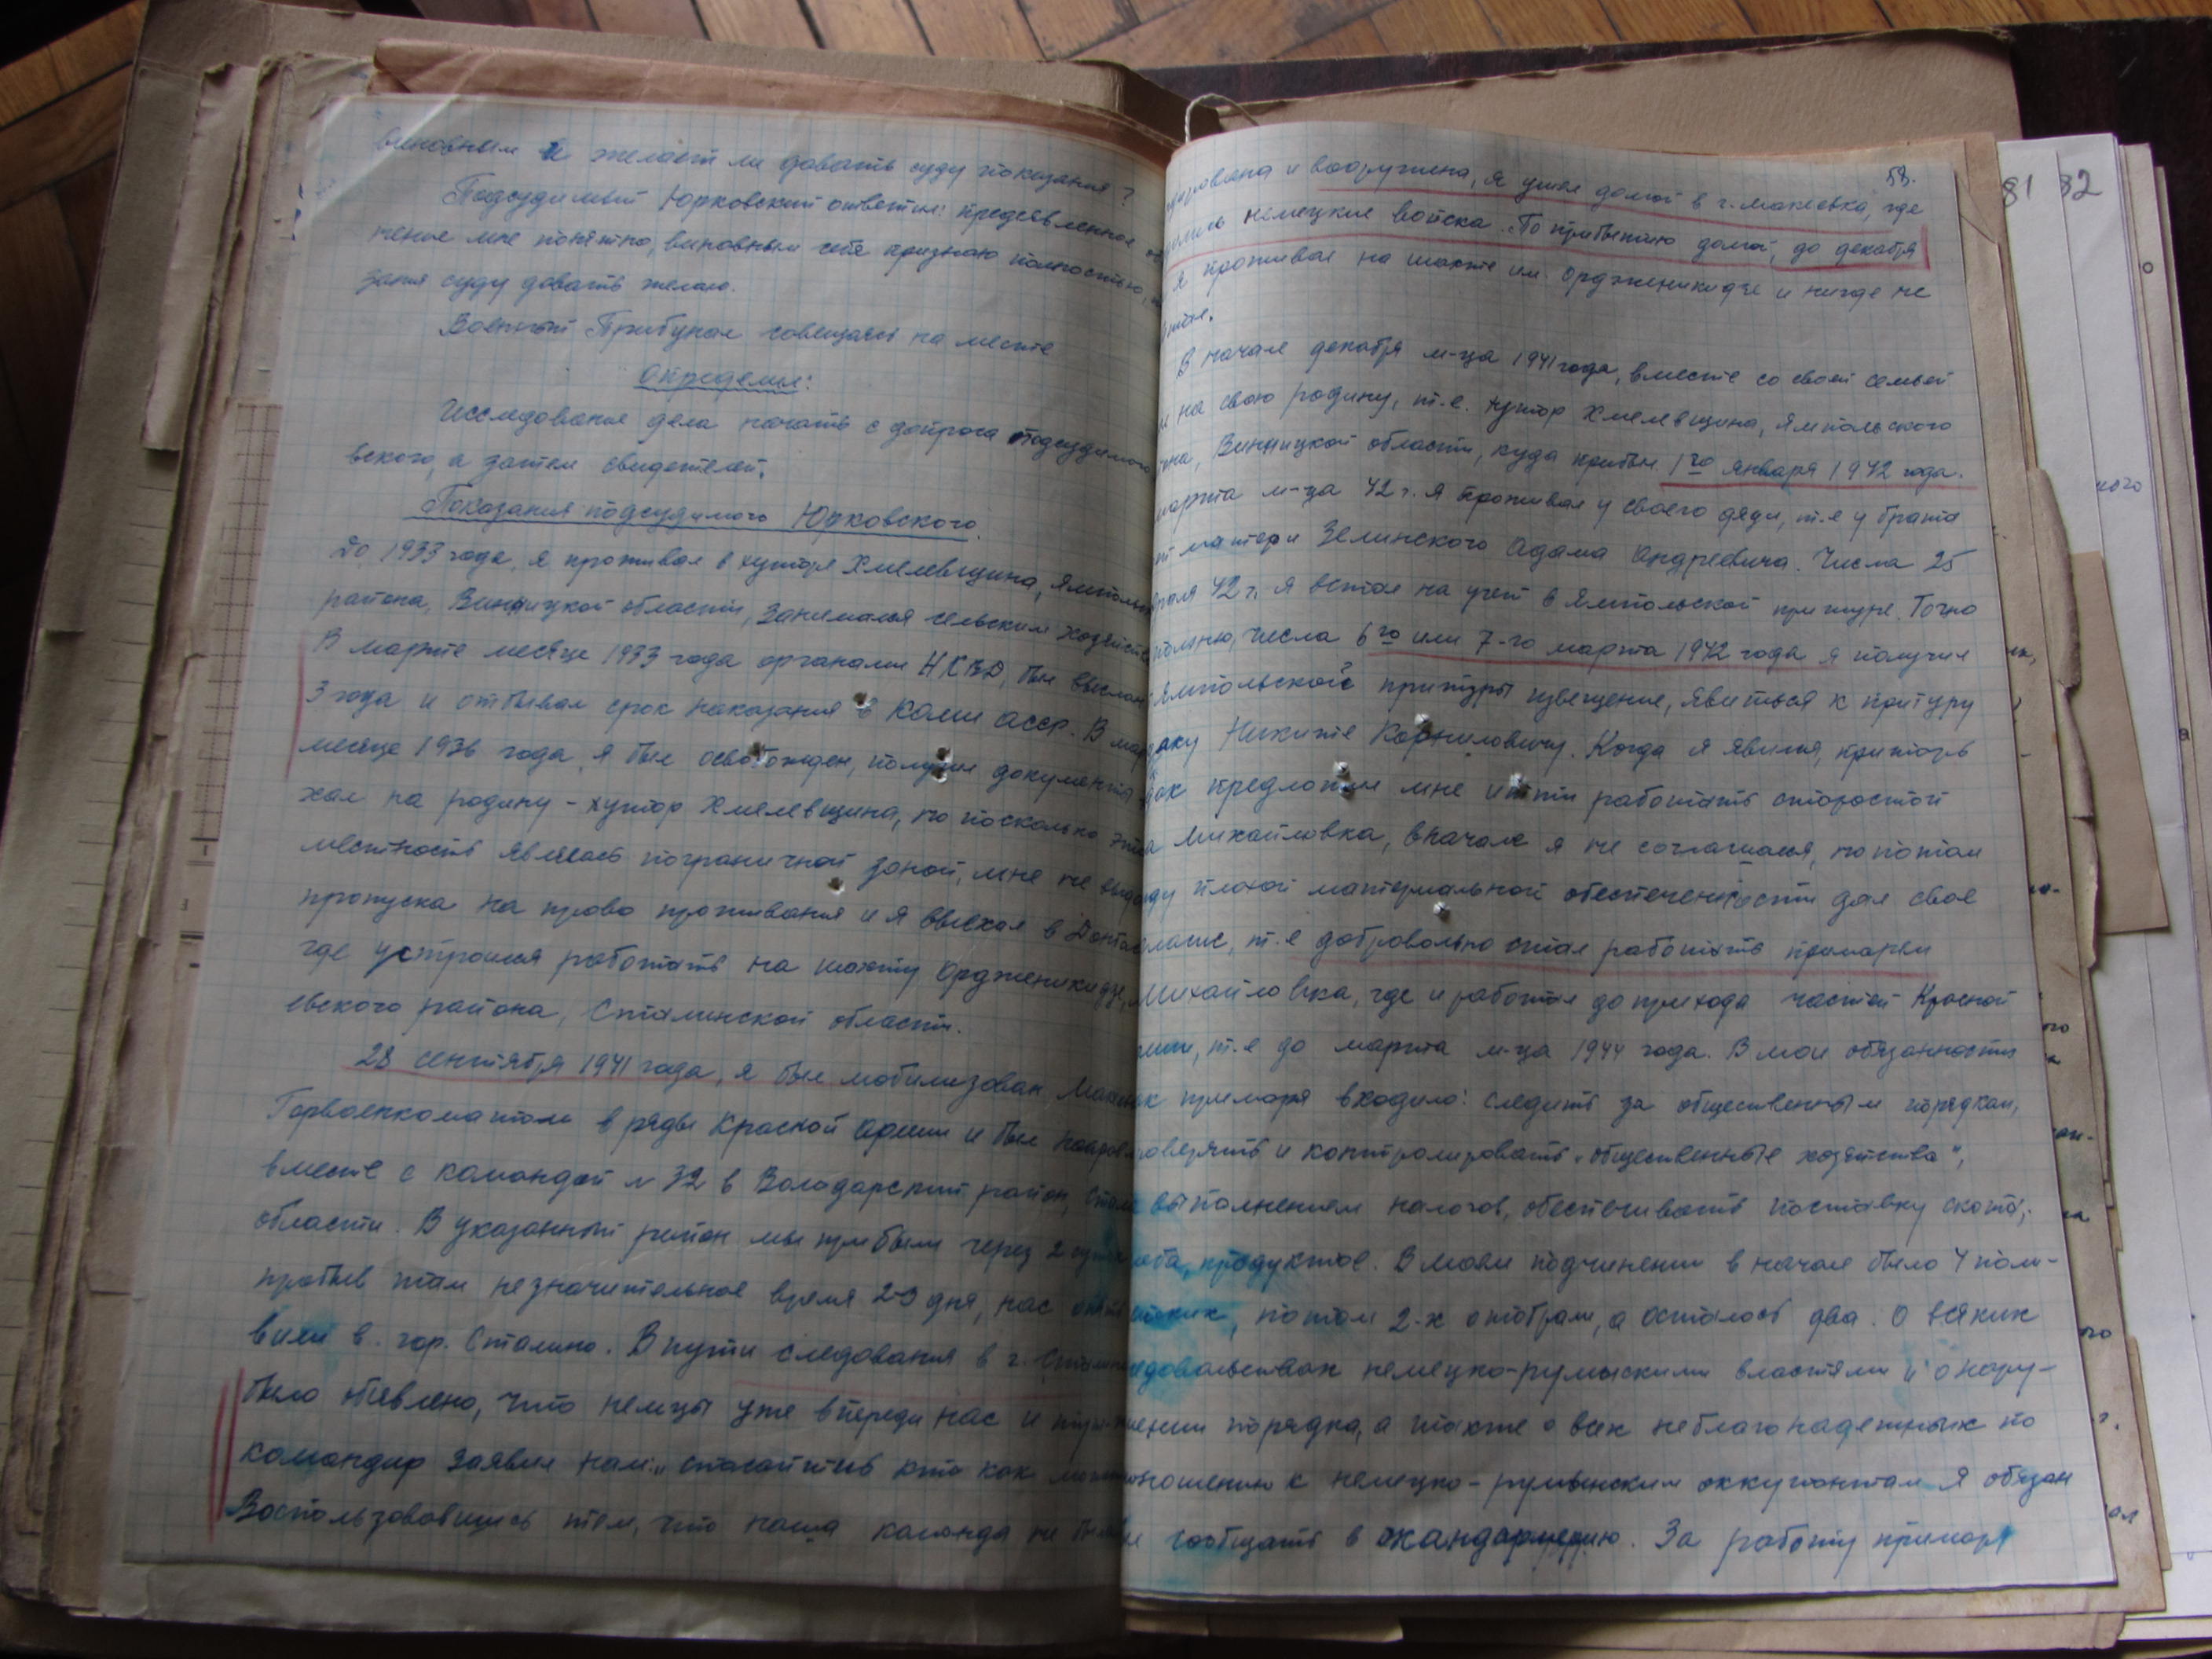 виновным и желает ли давать суду показания?
Подсудимый Юрковский ответил: предъявленное об
нение мне понятно, виновным себя признаю полностью, по
зания суду давать желаю.
Военный Трибунал совещаясь на месте
Определил:
Исследование дела начать с допроса подсудимого
вского, а затем свидетелей.
Показания подсудимого Юрковского.
До 1933 года, я проживал в хуторе Хмелевщина, Ямполь
района, Винницкой области, занимался сельским хозяйств
В марте месяце 1933 года органами НКВД, был выслан
3 года и отбывал срок наказания в Коми АССР. В мар
месяце 1936 года, я был освобожден, получил документ
хал на родину - хутор Хмелевщина, но поскольку эта
местность являлась пограничной зоной, мне не выд
пропуска на право проживания и я выехал в Донб
где устроился работать на шахту Орджоникидзе,
евского района, Сталинской области.
28 сентября 1941 года, я был мобилизован Маке
Горвоенкоматом в ряды Красной Армии и был направ
вместе с командой № 32 в Володарский район, Стал
области. В указанный район мы прибыли через 2 суток
пробыв там незначительное время 2-3 дня, нас
вили в гор. Сталино. В пути следования в г. Сталин
было объявлено, что немцы уже впереди нас и
командир заявил нам: „спасайтесь кто как мож
Воспользовавшись тем, что наша команда не был
53.
дирована и вооружена, я ушел домой в г. Макеевка, где
дились немецкие войска. По прибытию домой, до декабря
я проживал на шахте им. Орджоникидзе и нигде не
отал.
В начале декабря м-ца 1941 года, вместе со своей семьей
на свою родину, т.е. хутор Хмелевщина, Ямпольского
она, Винницкой области, куда прибыл 1го января 1942 года.
марта м-ца 42 г. я проживал у своего дяди, т.е у брата
матери Зелинского Адама Андреевича. Числа 25
раля 42 г. я встал на учет в Ямпольской притуре. Точно
помню, числа 6го или 7-го марта 1942 года я получил
Ямпольской притуры извещение, явиться к притуру
даку Никите Корниловичу. Когда я явился, приторь
дак предложил мне итти работать старостой
а Михайловка, вначале я не соглашался, но потом
иду плохой материальной обеспеченности дал свое
гласие, т.е добровольно стал работать примарем
Михайловка, где и работал до прихода частей Красной
рмии, т.е до марта м-ца 1944 года. В мои обязанности
как примаря входило: следить за общественным порядком,
роверять и контролировать „общественные хозяйства",
выполнением налогов, обеспечивать поставку скота,
еба, продуктов. В моем подчинении в начале было 4 поли-
цейских, потом 2-х отобрали, а осталось два. О всяких
едовольствах немецко-румынскими властями и о нару-
шении порядка, а также о всех неблагонадежных по
тношению к немецко-румынским оккупантам я обязан
сообщать в жандармерию. За работу примаря
81 82